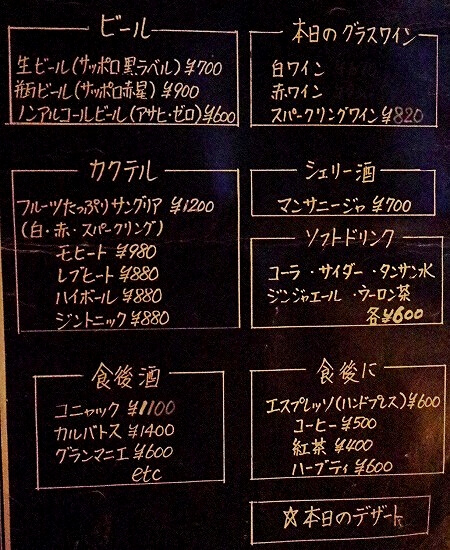 ビール
生ビール(サッポロ黒ラベル)¥700
瓶ビール(サッポロ赤星)¥900
ノンアルコールビール(アサヒ・ゼロ)¥600
カクテル
フルーツたっぷりサングリア ¥1200
(白・赤・スパークリング)
モヒート ¥980
レブヒート ¥880
ハイボール ¥880
ジントニック ¥880
食後酒
コニャック ¥1100
カルバトス ¥1400
グランマニエ ¥600
etc
本日のグラスワイン
白ワイン
赤ワイン
スパークリングワイン ¥820
シェリー酒
マンサニージャ ¥700
ソフトドリンク
コーラ・サイダー・タンサン水
ジンジャエール・ウーロン茶
各¥600
食後に
エスプレッソ(ハンドプレス)¥600
コーヒー ¥500
紅茶 ¥400
ハーブティ ¥600
☆本日のデザート